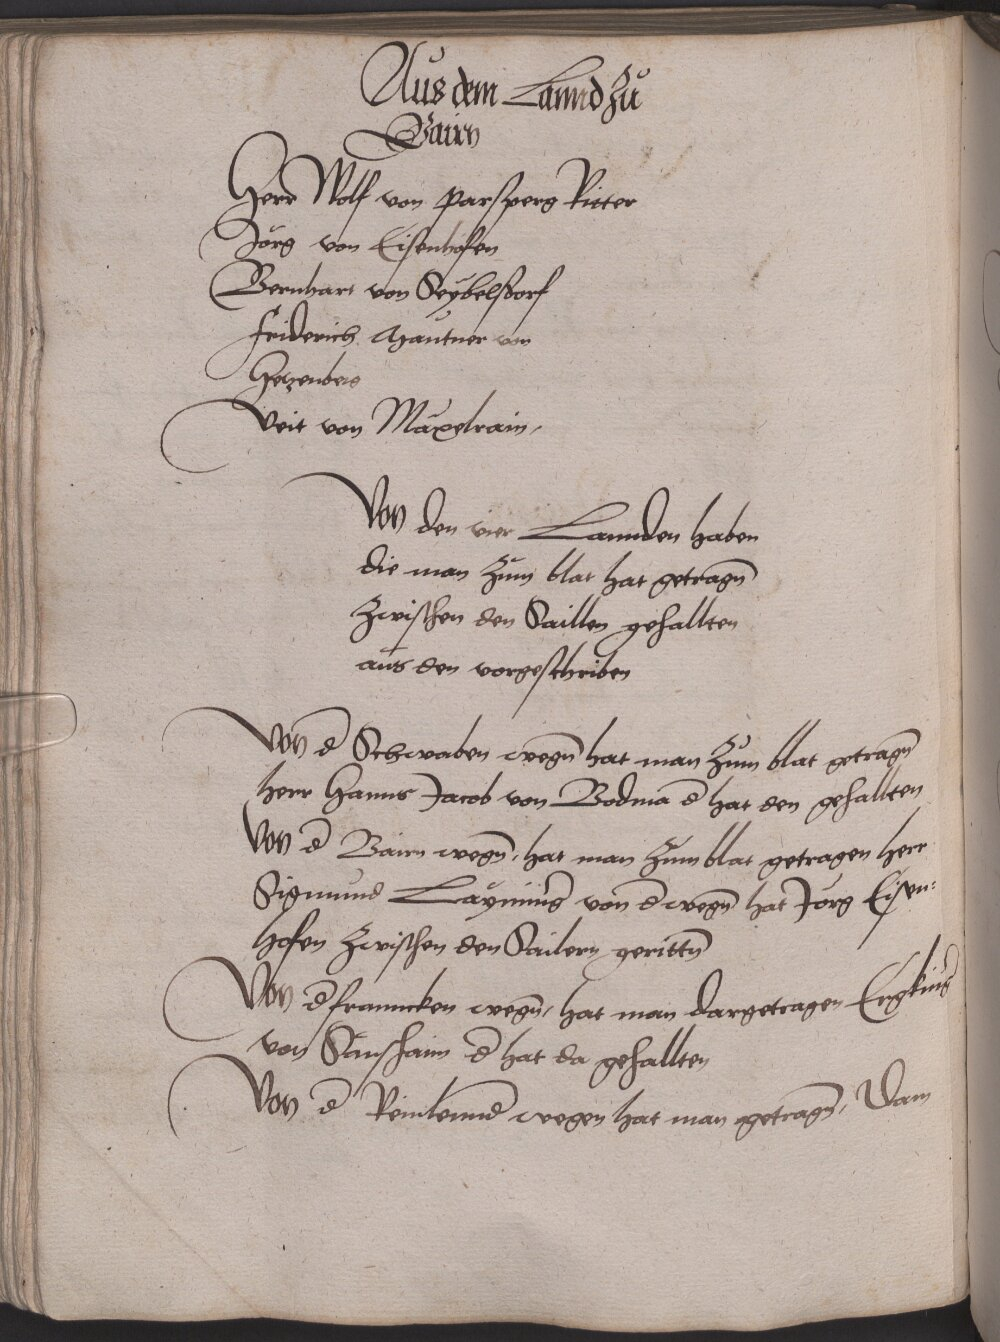 Aus dem Lannd Zu
Bairn
Herr Wolf von parsperg Ritter
Jorg von Eisenhofen
Bernhart von Seybelstorf
Friderich Mautner von
Veit von Maxelrain
Von den vier Lannden haben
die man zum blat hat getragn̄
zwischen den Saillen gehallten
aus den vorgeschriben
Von d Schwaben wegn̄ hat man zum blat getragn̄
herr Hanns Jacob von Bodma d hat den gehallten
Von d Bairn wegn̄, hat man zum blat getragen herr
Sigmund Layming von d wegn̄ hat Jorg Eisen-
hofen zwischen den Sailern gerittn̄
Von d franncken wegn̄, hat man dargetragen
von Saunshaim d hat da gehallten
Von d Reinlennd wegen hat man getragn̄,